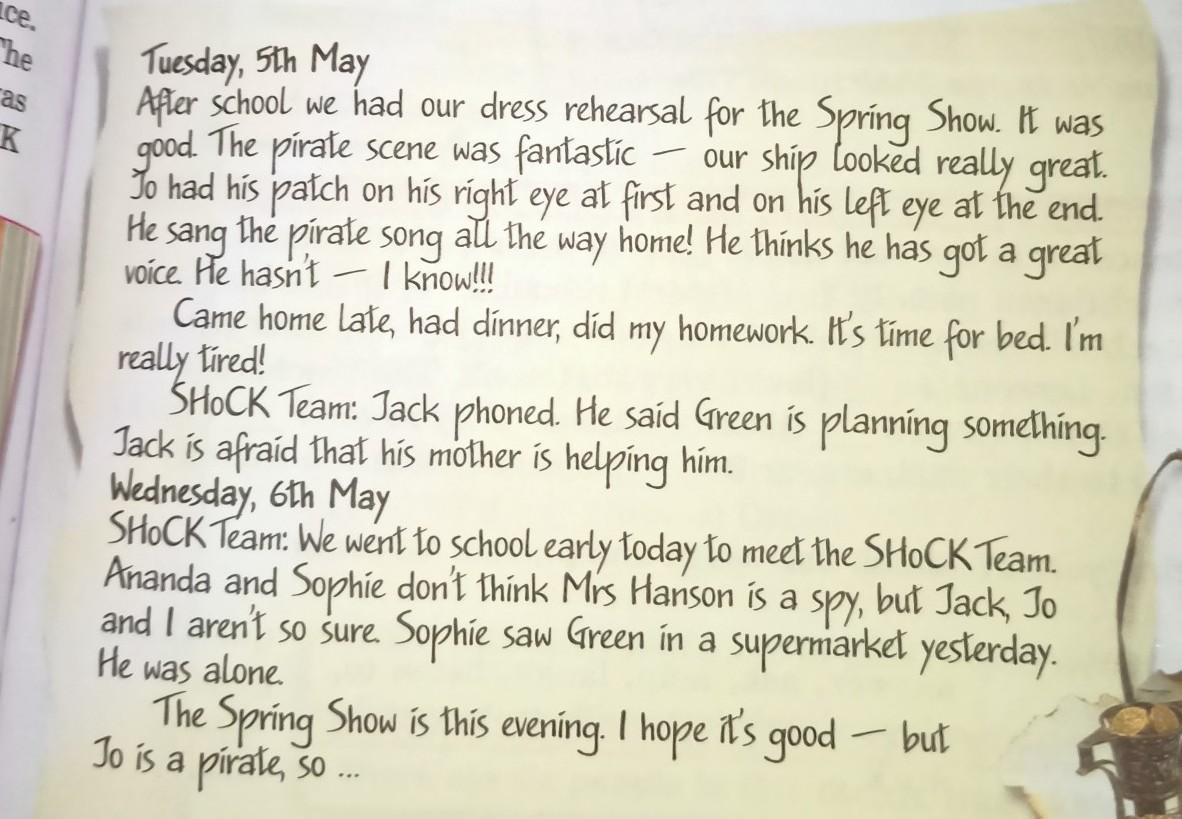 ice.
The
as
K
Tuesday, 5th May
After school we had our dress rehearsal for the Spring Show. It was
good. The pirate scene was fantastic — our ship looked really great.
Jo had his patch on his right eye at first and on his left eye at the end.
He sang the pirate song all the way home! He thinks he has got a great
voice. He hasn't — I know!!!
Came home late, had dinner, did my homework. It's time for bed. I'm
really tired!
SHoCK Team: Jack phoned. He said Green is planning something.
Jack is afraid that his mother is helping him.
Wednesday, 6th May
SHoCK Team: We went to school early today to meet the SHoCK Team.
Ananda and Sophie don't think Mrs Hanson is a spy, but Jack, Jo
and I aren't so sure. Sophie saw Green in a supermarket yesterday.
He was alone.
The Spring Show is this evening. I hope it's good — but
Jo is a pirate, so ...